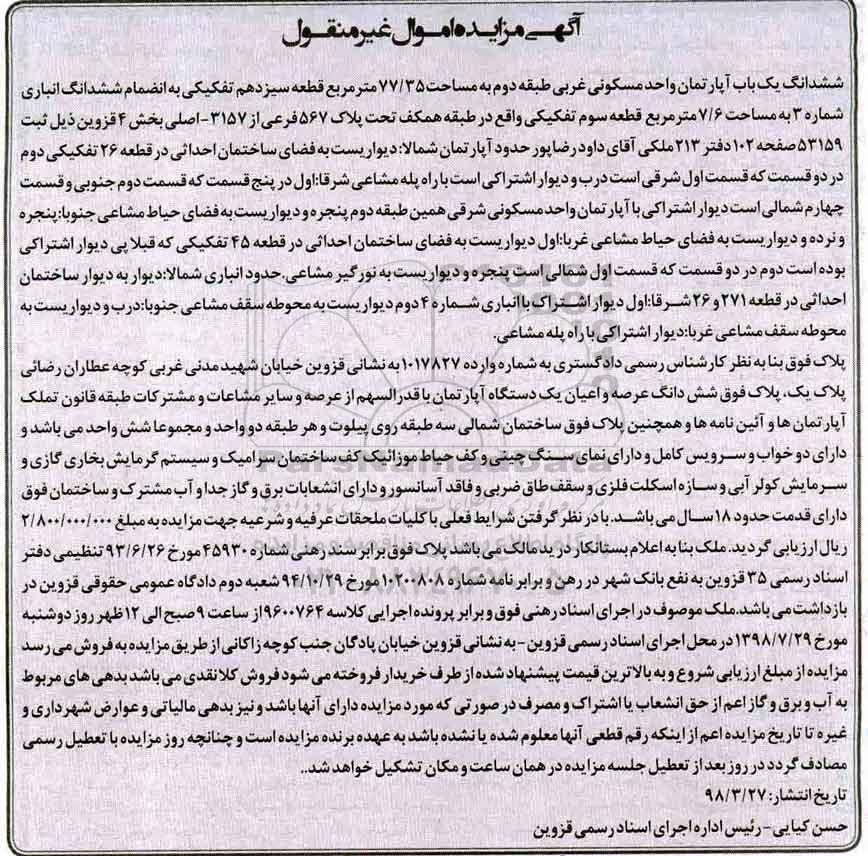 آگهی مزایده اموال غیر منقول
ششدانگ یک باب آپارتمان واحد مسکونی غربی طبقه دوم به مساحت ۷۷/۳۵ متر مربع قطعه سیزدهم تفکیکی به انضمام ششدانگ انباری
شماره ۳ به مساحت ۷/۶ متر مربع قطعه سوم تفکیکی واقع در طبقه همکف تحت پلاک ۵۶۷ فرعی از ۳۱۵۷-اصلی بخش ۴ قزوین ذیل ثبت
۵۳۱۵۹ صفحه ۱۰۲ دفتر ۲۱۳ ملکی آقای داود رضاپور حدود آپارتمان شمالا: دیواریست به فضای ساختمان احداثی در قطعه ۲۶ تفکیکی دوم
در دو قسمت که قسمت اول شرقی است درب و دیوار اشتراکی است با راه پله مشاعی شرقا: اول در پنج قسمت که قسمت دوم جنوبی و قسمت
چهارم شمالی است دیوار اشتراکی با آپارتمان واحد مسکونی شرقی همین طبقه دوم پنجره و دیواریست به فضای حیاط مشاعی جنوبا: پنجره
و نرده و دیواریست به فضای حیاط مشاعی غربا: اول دیواریست به فضای ساختمان احداثی در قطعه ۴۵ تفکیکی که قبلا پی دیوار اشتراکی
بوده است دوم در دو قسمت که قسمت اول شمالی است پنجره و دیواریست به نورگیر مشاعی. حدود انباری شمالا: دیوار به دیوار ساختمان
احداثی در قطعه ۲۷۱ و ۲۶ شرقا: اول دیوار اشتراک با انباری شماره ۴ دوم دیواریست به محوطه سقف مشاعی جنوبا: درب و دیواریست به
محوطه سقف مشاعی غربا: دیوار اشتراکی با راه پله مشاعی.
پلاک فوق بنا به نظر کارشناس رسمی دادگستری به شماره وارده ۱۰۱۷۸۲۷ به نشانی قزوین خیابان شهید مدنی غربی کوچه عطاران رضائی
پلاک یک، پلاک فوق شش دانگ عرصه و اعیان یک دستگاه آپارتمان با قدرالسهم از عرصه و سایر مشاعات و مشترکات طبقه قانون تملک
آپارتمان ها و آئین نامه ها و همچنین پلاک فوق ساختمان شمالی سه طبقه روی پیلوت و هر طبقه دو واحد و مجموعا شش واحد می باشد و
دارای دو خواب و سرویس کامل و دارای نمای سنگ چینی و کف حیاط موزائیک کف ساختمان سرامیک و سیستم گرمایش بخاری گازی و
سرمایش کولر آبی و سازه اسکلت فلزی و سقف طاق ضربی و فاقد آسانسور و دارای انشعابات برق و گاز جدا و آب مشترک و ساختمان فوق
دارای قدمت حدود ۱۸ سال می باشد. با در نظر گرفتن شرایط فعلی با کلیات ملحقات عرفیه و شرعیه جهت مزایده به مبلغ ۲/۸۰۰/۰۰۰/۰۰۰
ریال ارزیابی گردید. ملک بنا به اعلام بستانکار در ید مالک می باشد پلاک فوق برابر سند رهنی شماره ۴۵۹۳۰ مورخ ۹۳/۶/۲۶ تنظیمی دفتر
اسناد رسمی ۳۵ قزوین به نفع بانک شهر در رهن و برابر نامه شماره ۱۰۲۰۰۸۰۸ مورخ ۹۴/۱۰/۲۹ شعبه دوم دادگاه عمومی حقوقی قزوین در
بازداشت می باشد. ملک موصوف در اجرای اسناد رهنی فوق و برابر پرونده اجرایی کلاسه ۹۶۰۰۷۶۴ از ساعت ۹ صبح الی ۱۲ ظهر روز دوشنبه
مورخ ۱۳۹۸/۷/۲۹ در محل اجرای اسناد رسمی قزوین - به نشانی قزوین خیابان پادگان جنب کوچه زاکانی از طریق مزایده به فروش می رسد
مزایده از مبلغ ارزیابی شروع و به بالاترین قیمت پیشنهاد شده از طرف خریدار فروخته می شود فروش کلا نقدی می باشد بدهی های مربوط
به آب و برق و گاز اعم از حق انشعاب یا اشتراک و مصرف در صورتی که مورد مزایده دارای آنها باشد و نیز بدهی مالیاتی و عوارض شهرداری و
غیره تا تاریخ مزایده اعم از اینکه رقم قطعی آنها معلوم شده یا نشده باشد به عهده برنده مزایده است و چنانچه روز مزایده با تعطیل رسمی
مصادف گردد در روز بعد از تعطیل جلسه مزایده در همان ساعت و مکان تشکیل خواهد شد..
تاریخ انتشار: ۹۸/۳/۲۷
حسن کیایی - رئیس اداره اجرای اسناد رسمی قزوین
ParsNamadData